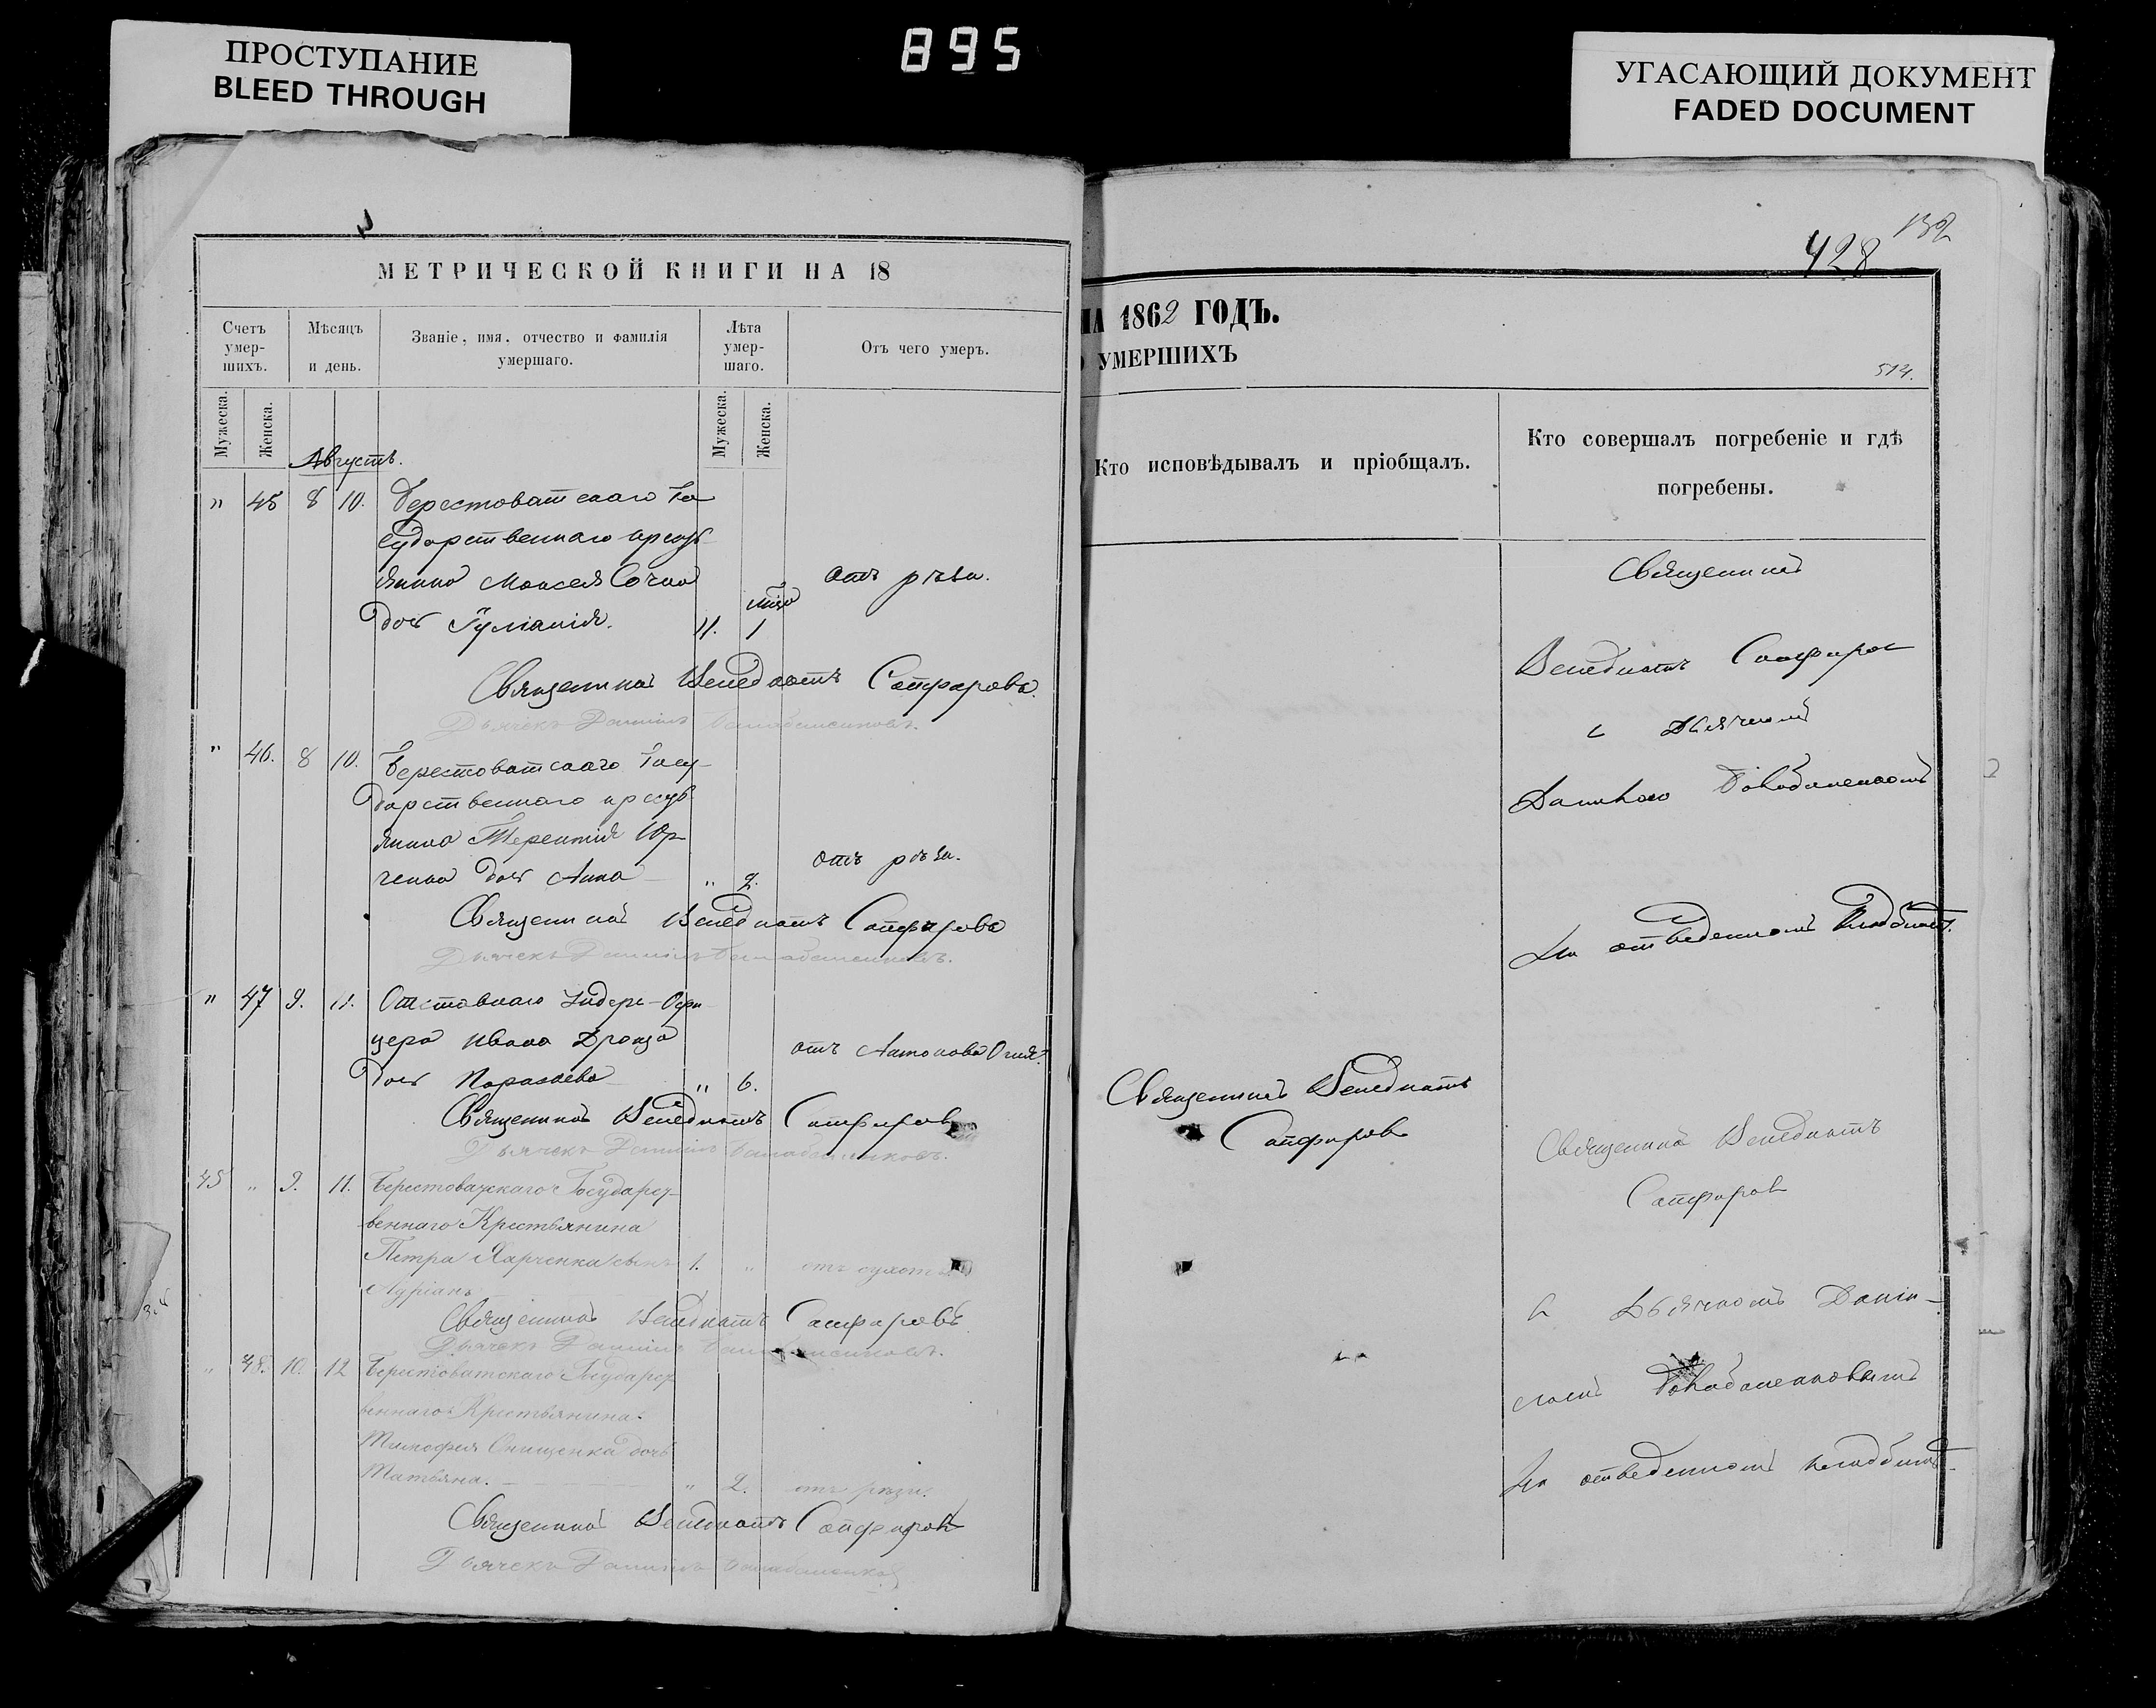 895
ПРОСТУПАНИЕ
BLEED THROUGH
УГАСАЮЩИЙ ДОКУМЕНТ
FADED DOCUMENT
МЕТРИЧЕСКОЙ КНИГИ НА 18
Счетъ умер- шихъ.
Мѣсяцъ и день.
Званіе, имя, отчество и фамилія умершаго.
Лѣта умер- шаго.
Отъ чего умеръ.
Мужеска.
Женска.
Мужеска.
Женска.
Августъ.
" 45 8 10. Берестоватскаго Го
сударственнаго кресть
янина Моисея
дочь Іуліанія. 1 отъ рѣзи.
Священникъ Венедиктъ Сапфировъ
Дьячекъ Даніилъ
" 46. 8 10. Берестоватскаго Госу-
дарственнаго кресть
янина Терентія Юр
ченка дочь Анна " 2. отъ рѣзи.
Священникъ Венедиктъ Сапфировъ
Дьячекъ Даніилъ
" 47 9. 11. Отставнаго Ундеръ-Офи
цера Ивана
дочь Параскева " 6. отъ Антонова Огня.
Священникъ Венедиктъ Сапфировъ
Дьячекъ Даніилъ
45 " 9. 11. Берестоватскаго Государст-
веннаго Крестьянина
Петра Харченка сынъ 1. "
Адріанъ
Священникъ Венедиктъ Сапфировъ
Дьячекъ Даніилъ
" 48. 10. 12 Берестоватскаго Государст
веннаго Крестьянина
Тимофея Онищенка дочь
Татьяна. " 2. отъ рѣзи.
Священникъ Венедиктъ Сапфировъ
Дьячекъ Даніилъ
428
НА 1862 ГОДЪ.
УМЕРШИХЪ
514.
Кто исповѣдывалъ и пріобщалъ.
Кто совершалъ погребеніе и гдѣ погребены.
Священникъ
Венедиктъ Сапфиров
с Дьячкомъ
На отведенномъ Кладбищѣ.
Священникъ Венедиктъ
Сапфировъ
Священникъ Венедиктъ
Сапфиров
с Дьячкомъ Даніи-
ломъ
На отведенномъ кладбищѣ.